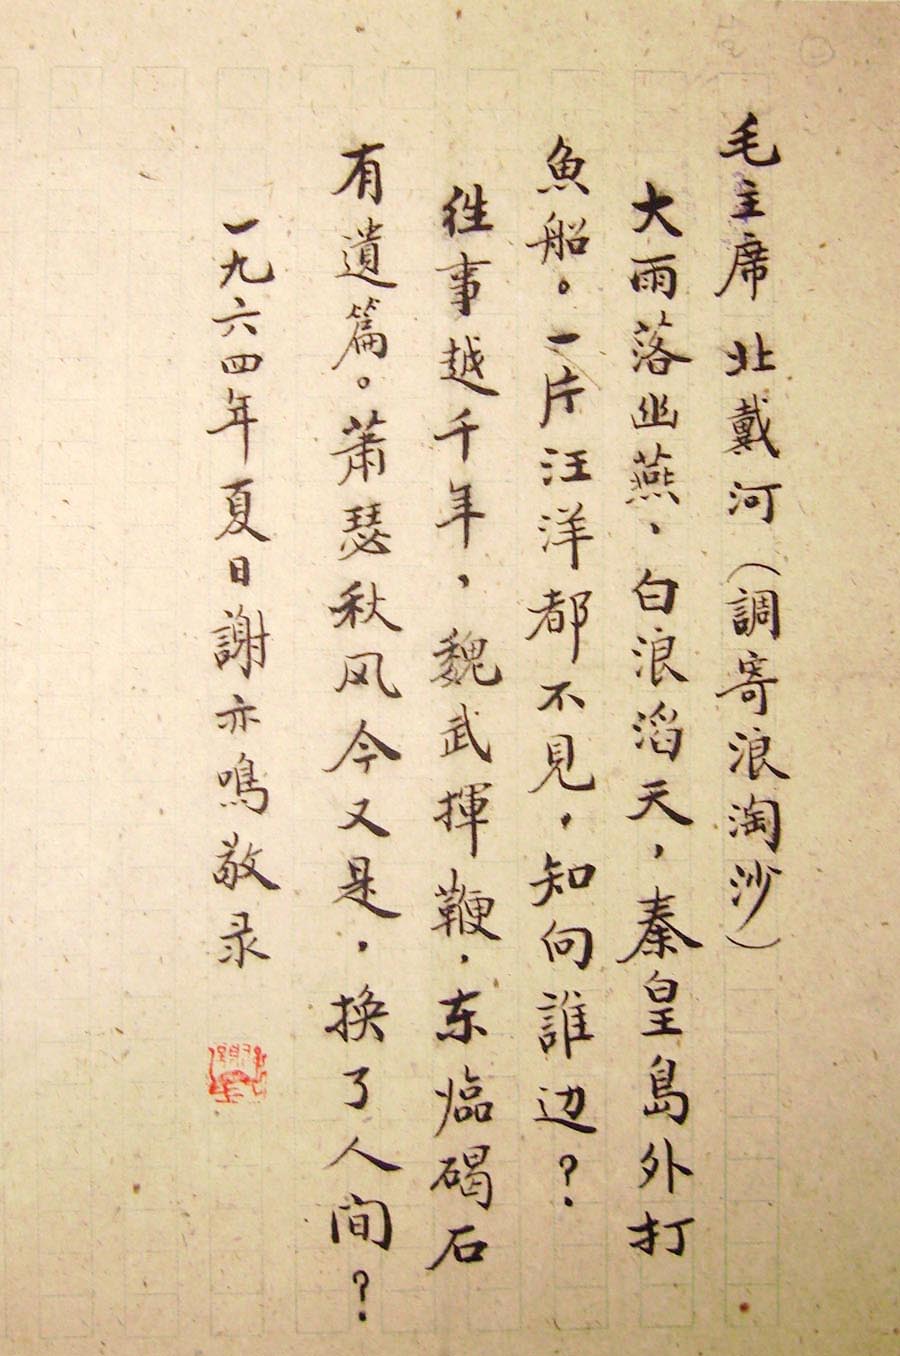 毛主席 北戴河（調寄浪淘沙）
大雨落幽燕，白浪滔天，秦皇島外打
魚船。一片汪洋都不見，知向誰边？
徃事越千年，魏武揮鞭，东临碣石
有遺篇。萧瑟秋风今又是，换了人间？
一九六四年夏日謝亦鳴敬录